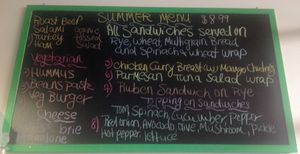 SUMMER MENU $8.99
Roast Beef
Salami
Turkey
Ham Salad
Vegetarian
HUMMUS
Beans Paste
Veg Burger
Cheese
brie
All Sandwiches served on
Rye, wheat, Multigrain Bread
and Spinach & wheat wrap
Chicken Curry Breast w/ Mango Chutney
Parmesan Tuna Salad wrap
Ruben Sandwich on Rye
Topping on Sandwiches
Tom Spinach Cucumber Pepper
Red onion, Avocado, olive, Mushroom, Pickle
Hot pepper lettuce